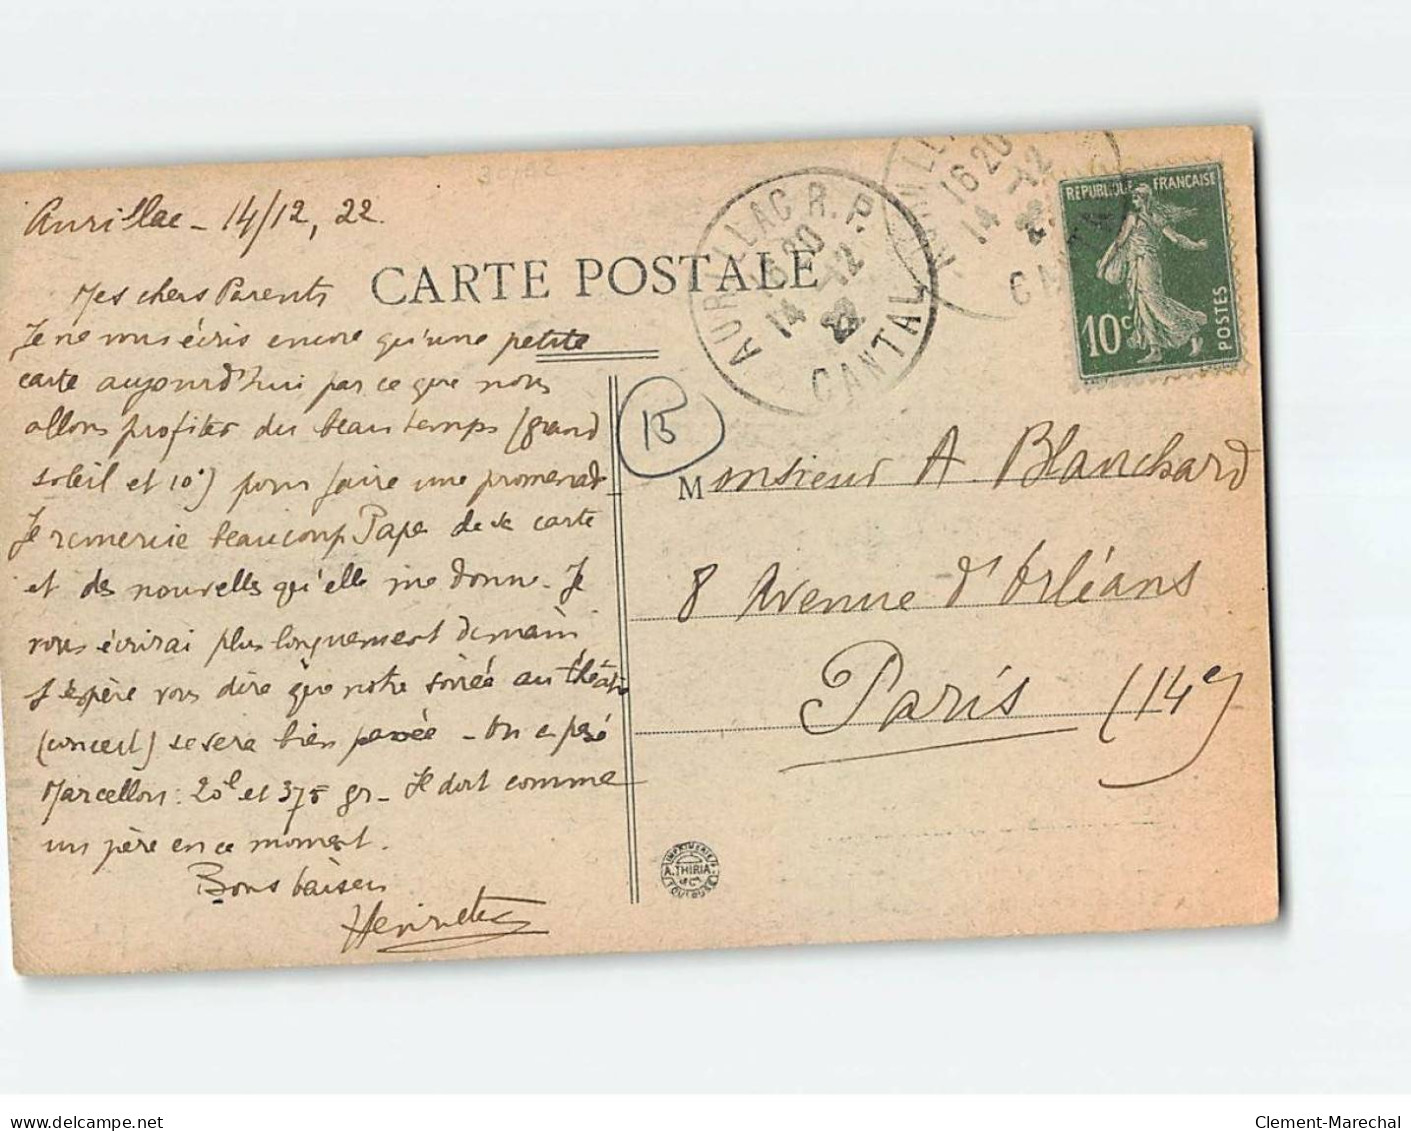 Aurillac - 14/12, 22
CARTE POSTALE
AURILLAC R.P.
16 20
14 - 12
22
CANTAL
16 20
14 12
22
RÉPUBLIQUE FRANÇAISE
10c
POSTES
Mes chers Parents
Je ne vous écris encore qu'une petite
carte aujourd'hui par ce que nous
allons profiter du beau temps (grand
soleil et 10°) pour faire une promenade
Je remercie beaucoup Papa de sa carte
et des nouvelles qu'elle me donne. Je
vous écrirai plus longuement demain
J'espère vous dire que notre soirée au théâtre
(concert) se sera bien passée - On a pesé
Marcellou : 20l et 375 gr - Il dort comme
un père en ce moment.
Bons baisers
Henriette
Monsieur A. Blanchard
8 Avenue d'Orléans
Paris (14e)
IMPRIMERIE
A. THIRIA
TOULOUSE
delcampe.net
Clement-Marechal